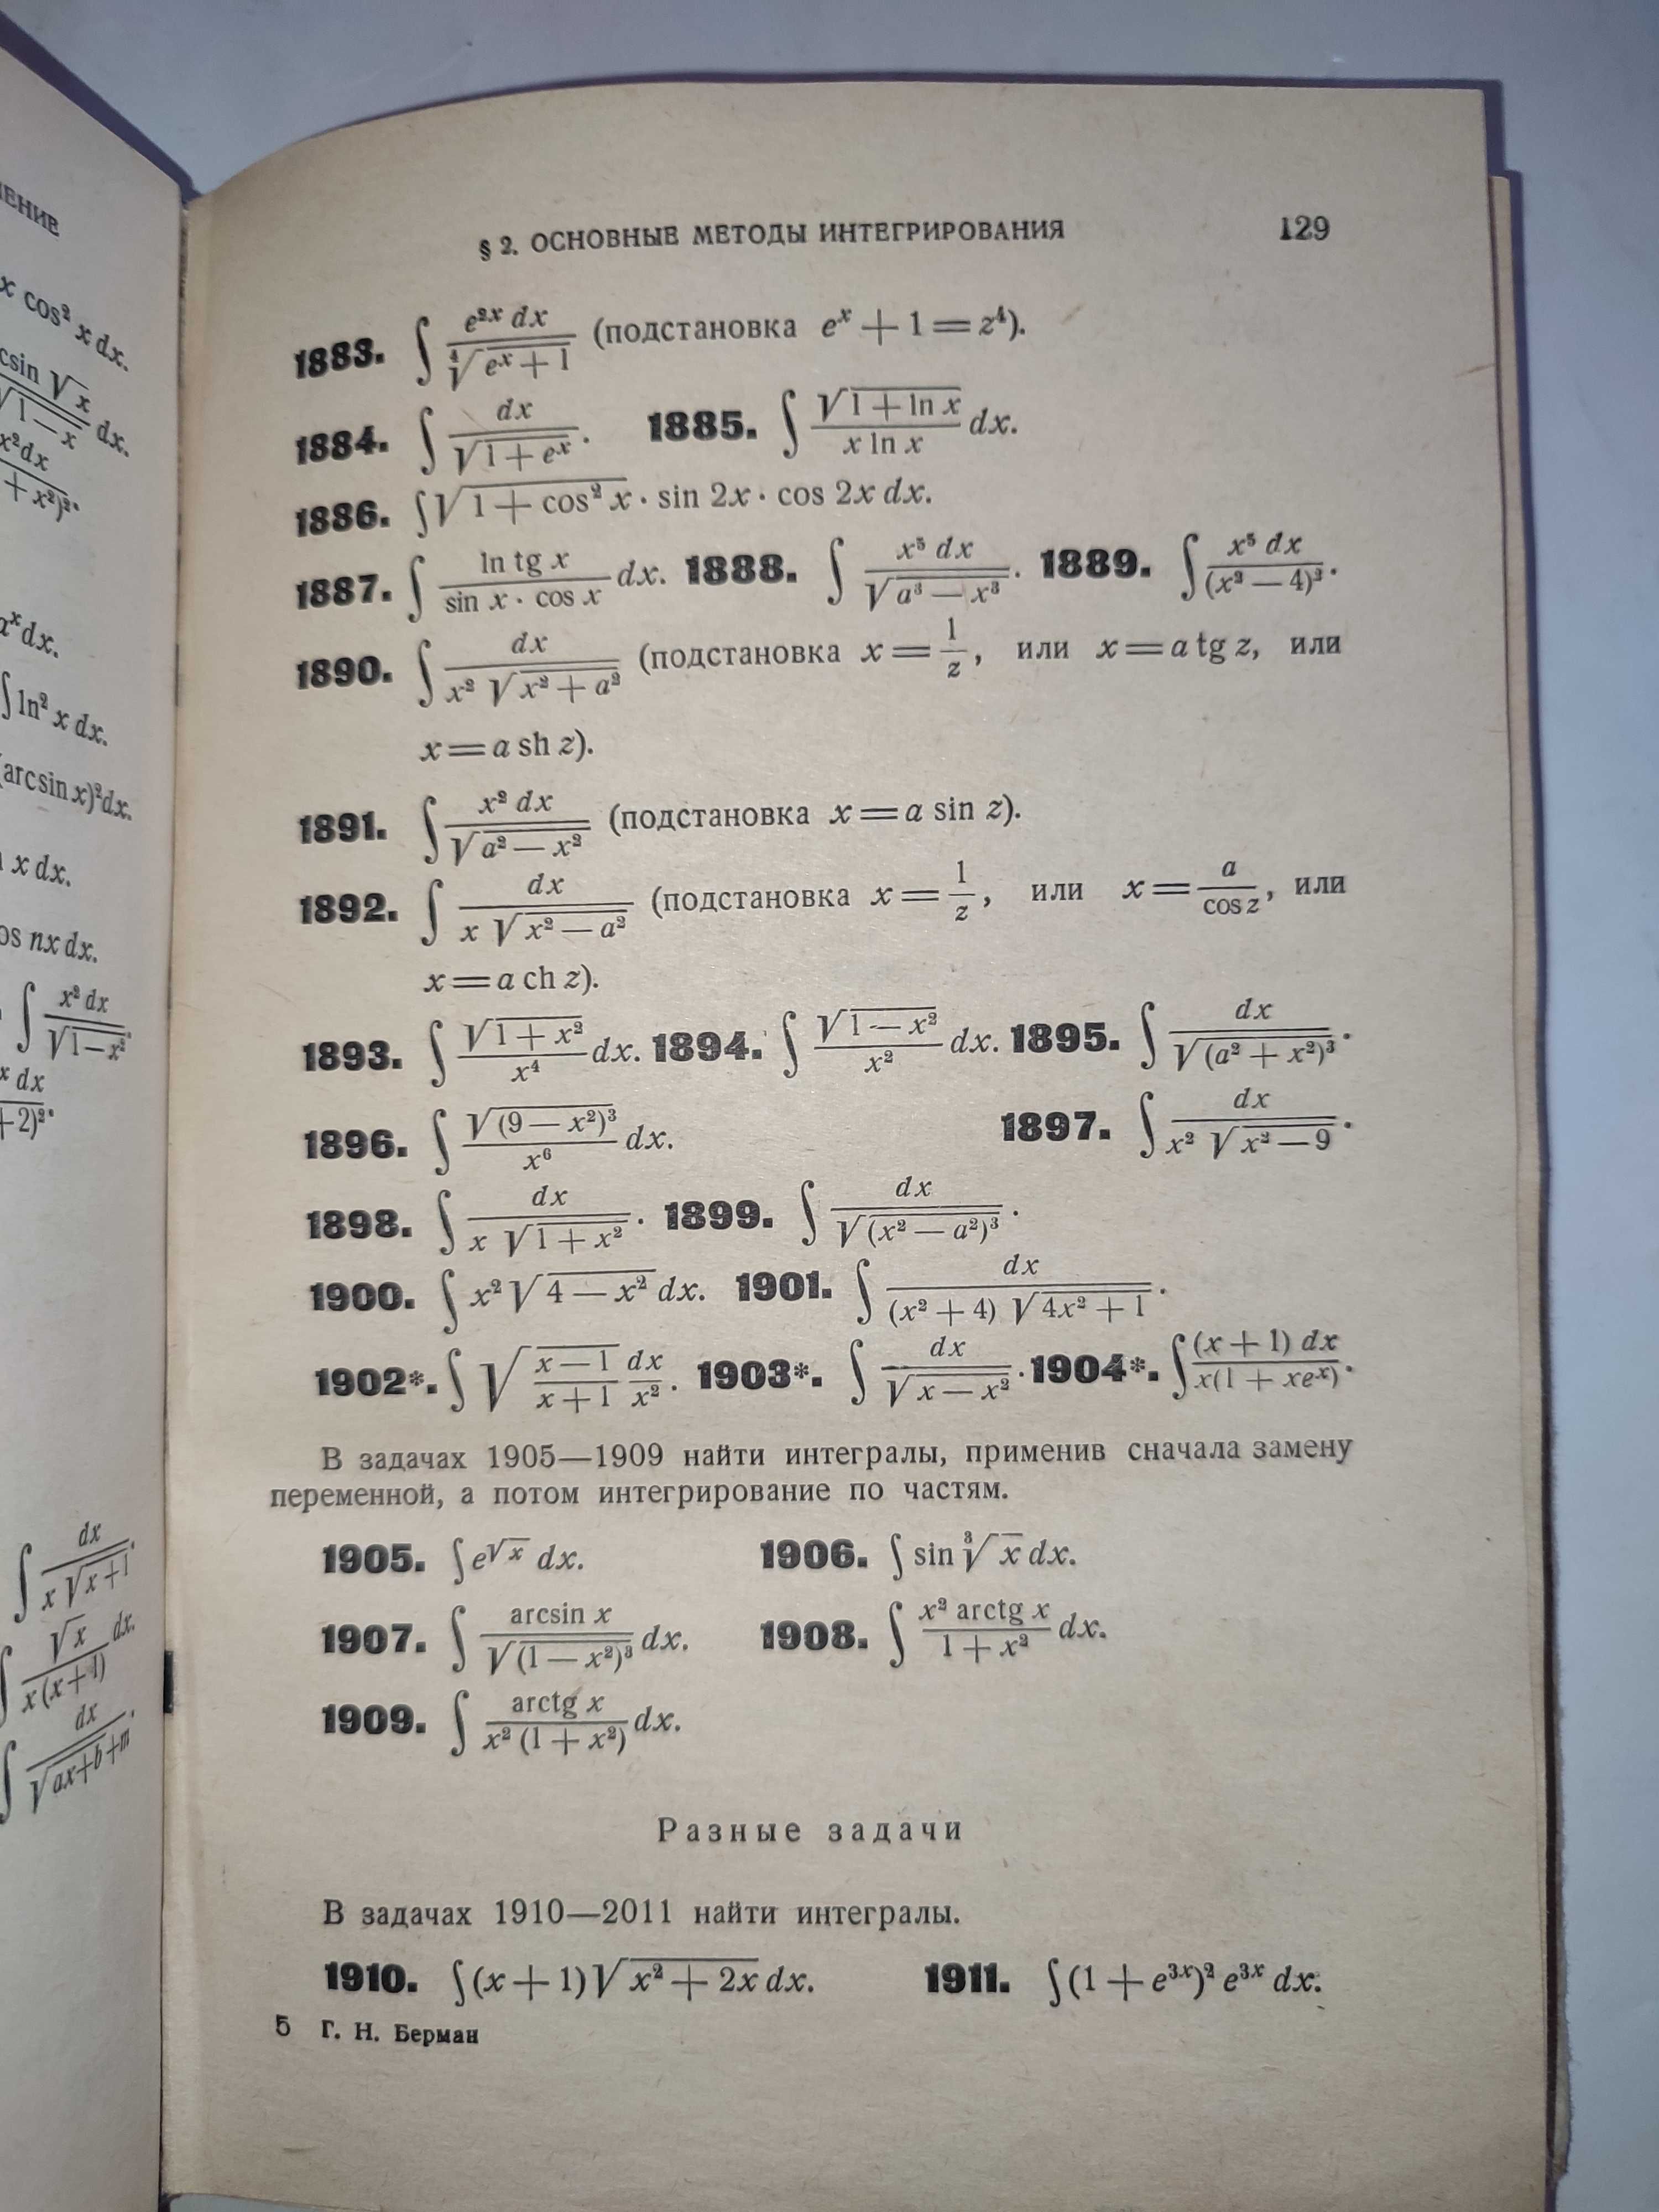 ЕНИЕ
x cos² x dx.
x² dx
aˣ dx.
∫ ln² x dx.
(arcsin x)² dx.
x dx.
os nx dx.
∫ x² dx / √(1—x²).
x dx
+2)².
∫ dx / (x √(x+1)).
∫ √x / (x(x+1)) dx.
∫ dx / (√(ax+b)+m).
§ 2. ОСНОВНЫЕ МЕТОДЫ ИНТЕГРИРОВАНИЯ 129
1883. ∫ e²ˣ dx / ⁴√(eˣ + 1) (подстановка eˣ + 1 = z⁴).
1884. ∫ dx / √(1 + eˣ). 1885. ∫ √(1 + ln x) / (x ln x) dx.
1886. ∫ √(1 + cos² x) · sin 2x · cos 2x dx.
1887. ∫ ln tg x / (sin x · cos x) dx. 1888. ∫ x⁵ dx / √(a³ — x³). 1889. ∫ x⁵ dx / (x² — 4)³.
1890. ∫ dx / (x² √(x² + a²)) (подстановка x = 1/z, или x = a tg z, или
x = a sh z).
1891. ∫ x² dx / √(a² — x²) (подстановка x = a sin z).
1892. ∫ dx / (x √(x² — a²)) (подстановка x = 1/z, или x = a / cos z, или
x = a ch z).
1893. ∫ √(1 + x²) / x⁴ dx. 1894. ∫ √(1 — x²) / x² dx. 1895. ∫ dx / √((a² + x²)³).
1896. ∫ √((9 — x²)³) / x⁶ dx. 1897. ∫ dx / (x² √(x² — 9)).
1898. ∫ dx / (x √(1 + x²)). 1899. ∫ dx / √((x² — a²)³).
1900. ∫ x² √(4 — x²) dx. 1901. ∫ dx / ((x² + 4) √(4x² + 1)).
1902*. ∫ √((x — 1) / (x + 1)) dx / x². 1903*. ∫ dx / √(x — x²). 1904*. ∫ (x + 1) dx / (x(1 + xeˣ)).
В задачах 1905—1909 найти интегралы, применив сначала замену
переменной, а потом интегрирование по частям.
1905. ∫ e^√x dx. 1906. ∫ sin ³√x dx.
1907. ∫ arcsin x / √((1 — x²)³) dx. 1908. ∫ x² arctg x / (1 + x²) dx.
1909. ∫ arctg x / (x² (1 + x²)) dx.
Разные задачи
В задачах 1910—2011 найти интегралы.
1910. ∫ (x + 1) √(x² + 2x) dx. 1911. ∫ (1 + e³ˣ)² e³ˣ dx.
5 Г. Н. Берман